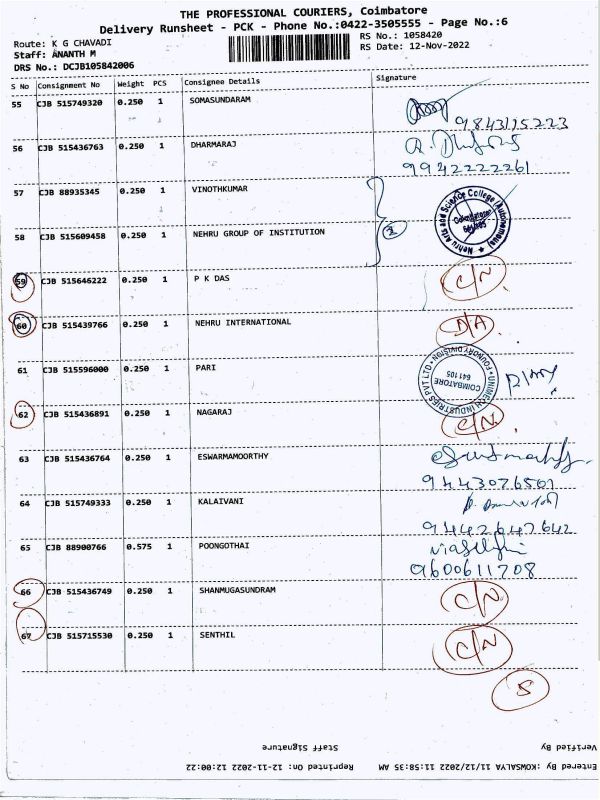 THE PROFESSIONAL COURIERS, Coimbatore
Delivery Runsheet - PCK - Phone No.:0422-3505555 - Page No.:6
Route: K G CHAVADI
RS No.: 1058420
Staff: ANANTH M
RS Date: 12-Nov-2022
DRS No.: DCJB105842006
S No Consignment No Weight PCS Consignee Details Signature
55 CJB 515749320 0.250 1 SOMASUNDARAM
9843115223
56 CJB 515436763 0.250 1 DHARMARAJ
9942222261
57 CJB 88935345 0.250 1 VINOTHKUMAR
Nehru Arts and Science College (Autonomous)
58 CJB 515609458 0.250 1 NEHRU GROUP OF INSTITUTION 2
59 CJB 515646222 0.250 1 P K DAS C/N
60 CJB 515439766 0.250 1 NEHRU INTERNATIONAL D/A
61 CJB 515596000 0.250 1 PARI
UNIMECH INDUSTRIES PVT LTD FOUNDRY DIVISION
COIMBATORE
641 105
62 CJB 515436891 0.250 1 NAGARAJ C/N
63 CJB 515436764 0.250 1 ESWARMAMOORTHY
9443076501
64 CJB 515749333 0.250 1 KALAIVANI
9442647642
65 CJB 88900766 0.575 1 POONGOTHAI
9600611708
66 CJB 515436749 0.250 1 SHANMUGASUNDRAM C/N
67 CJB 515715530 0.250 1 SENTHIL C/N
5
Verified By
Staff Signature
Entered By :KOWSALVA 11/12/2022 11:58:35 AM
Reprinted On: 12-11-2022 12:00:22